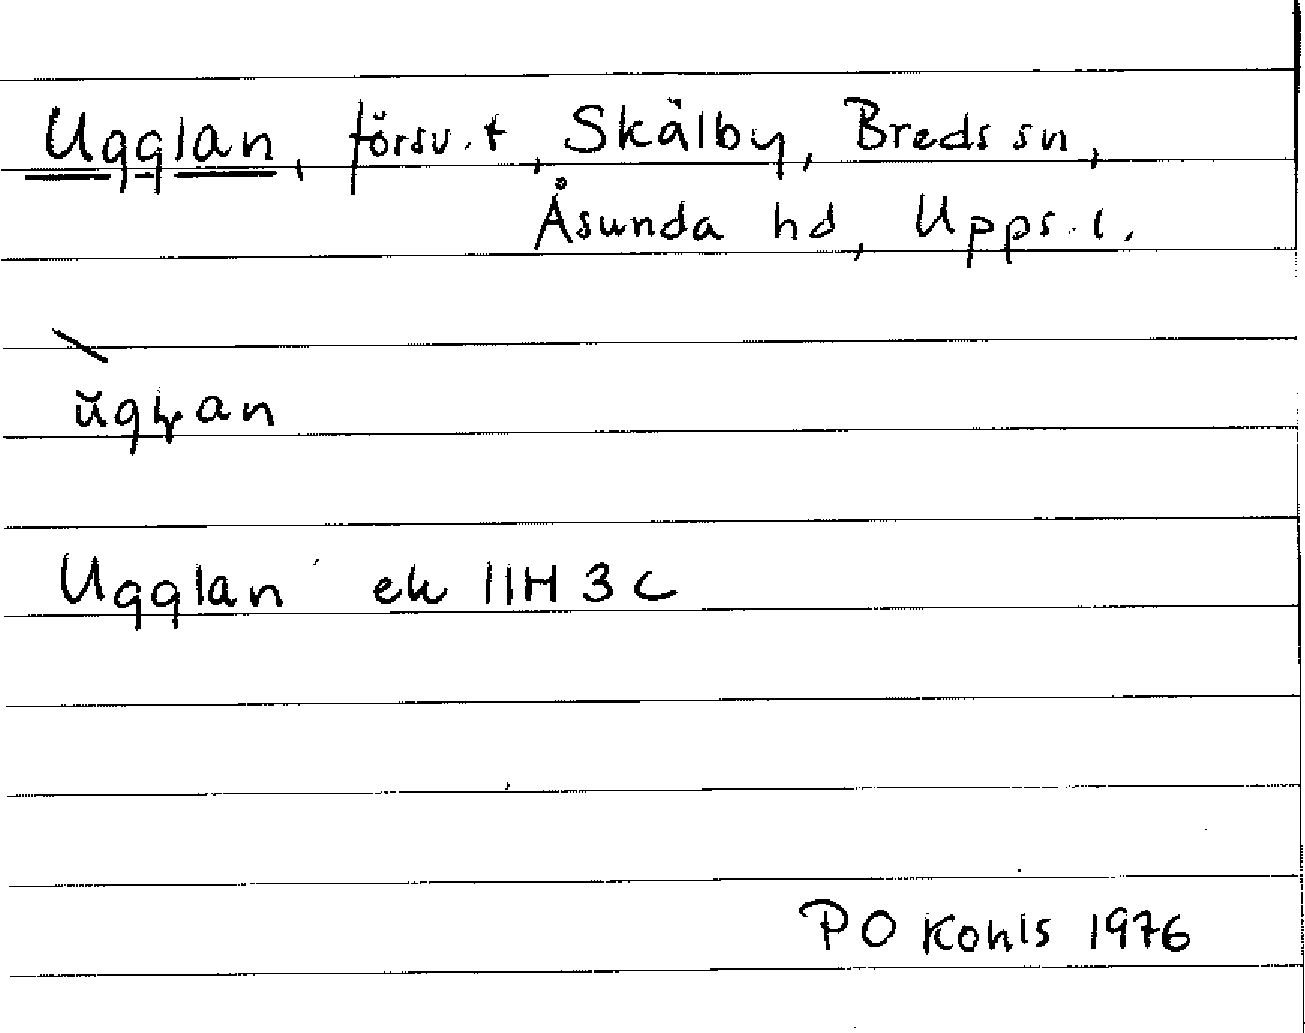 Ugglan, försv. t, Skälby, Breds sn,
Åsunda hd, Upps. l.
\
Ugglan ek 11H 3 c
P O Kohls 1976